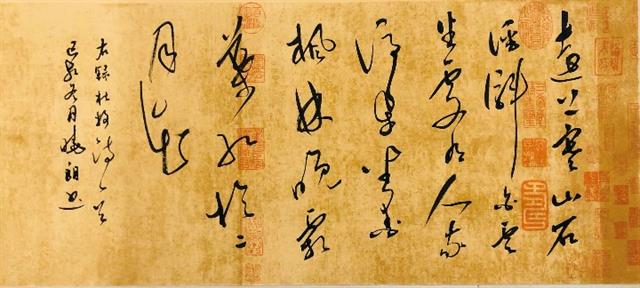 遠上寒山石
徑斜白雲
生處有人家
停車坐愛
楓林晚霜
葉紅於二
月花
右錄杜牧詩一首
己亥冬月曉朗書